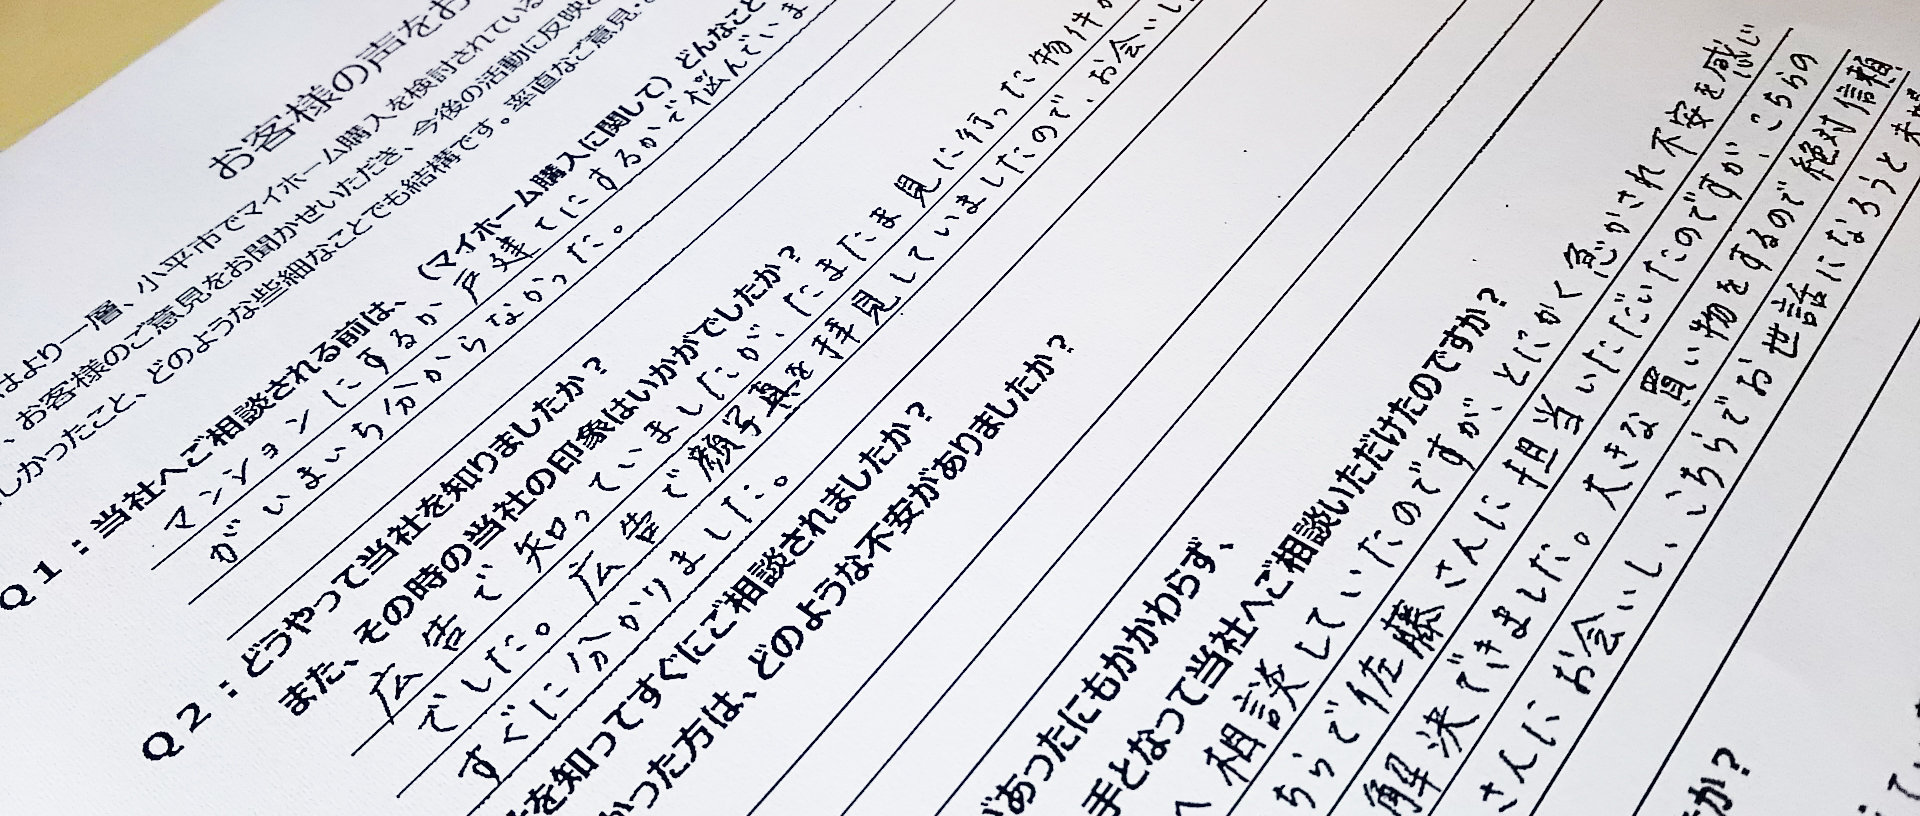 お客様の声をお
はより一層、小平市でマイホーム購入を検討されている
、お客様のご意見をお聞かせいただき、今後の活動に反映
しかったこと、どのような些細なことでも結構です。率直なご意見・
Q1：当社へご相談される前は、（マイホーム購入に関して）どんなこと
マンションにするか戸建てにするかで悩んでいま
がいまいち分からなかった。
Q2：どうやって当社を知りましたか？
また、その時の当社の印象はいかがでしたか？
広告で知っていましたが、たまたま見に行った物件が
でした。広告で顔写真を拝見していましたので、お会いし
すぐに分かりました。
を知ってすぐにご相談されましたか？
かった方は、どのような不安がありましたか？
があったにもかかわらず、
手となって当社へご相談いただけたのですか？
へ相談していたのですが、とにかく急かされ不安を感じ
ちらで佐藤さんに担当いただいたのですが、こちらの
解決できました。大きな買い物をするので絶対信頼
さんにお会いし、こちらでお世話になろうと
か？